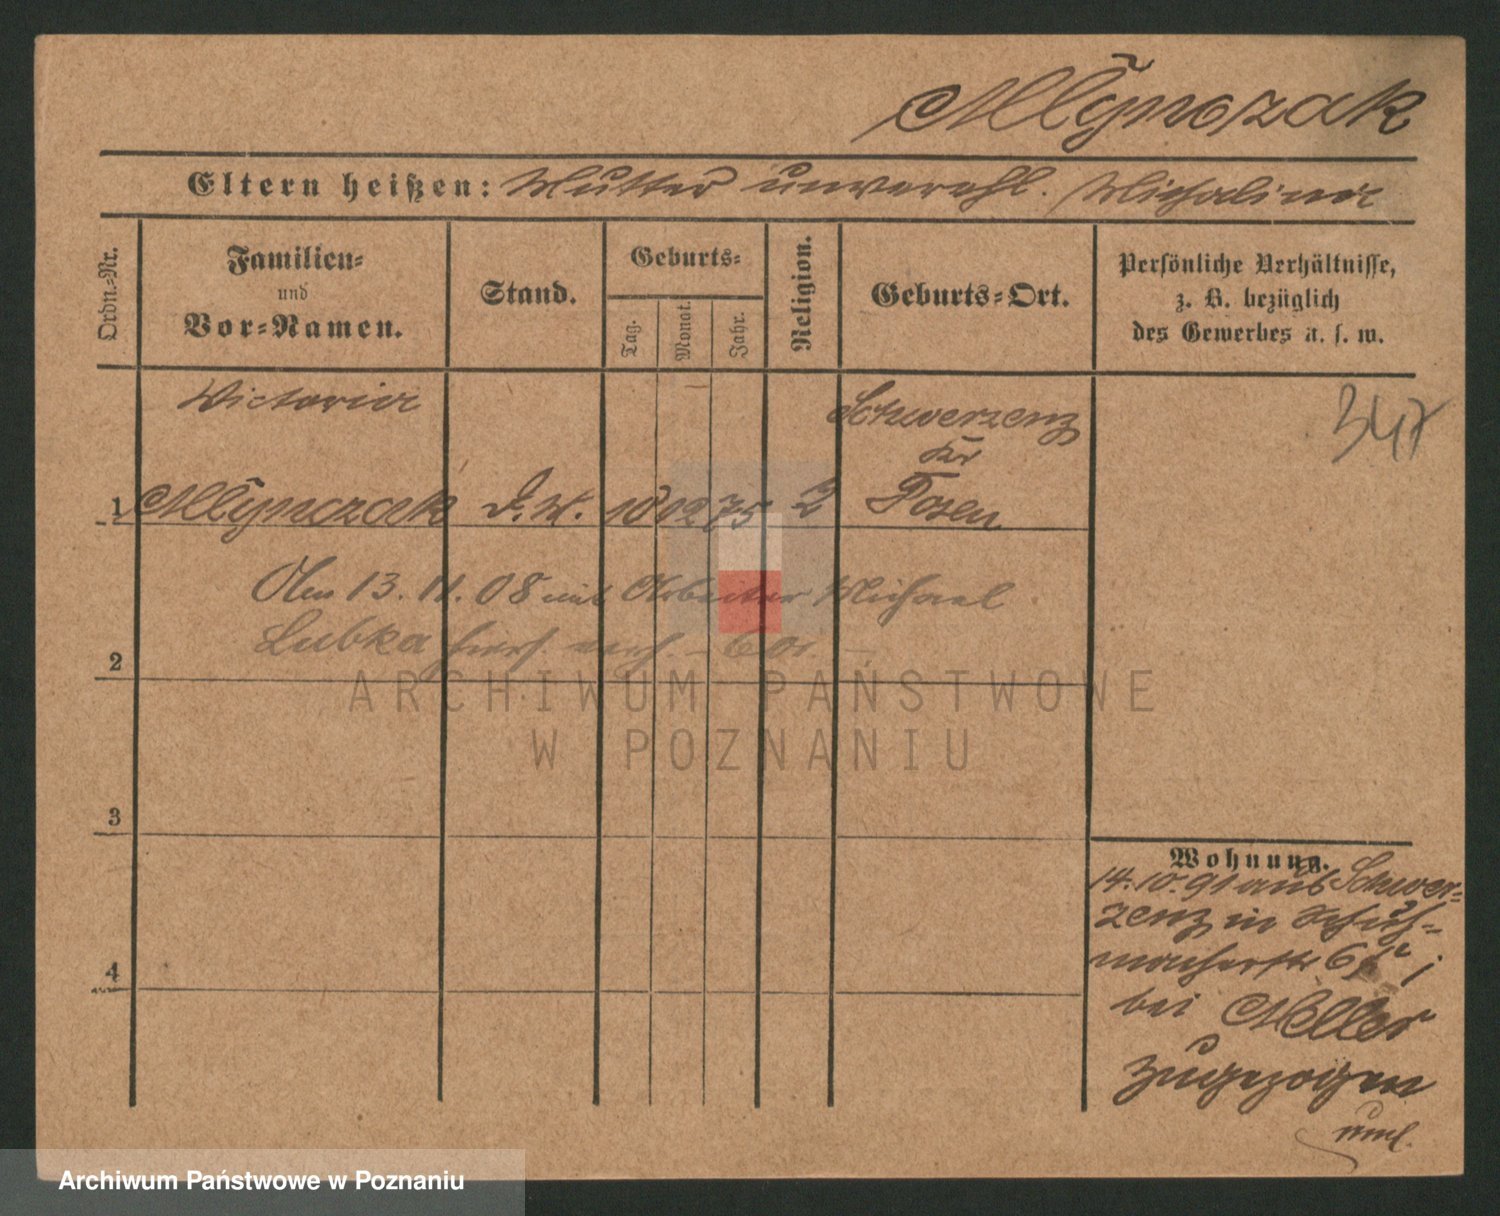 Młynczak
Eltern heißen: Mutter unverehl. Michalina
Ordn.-Nr.
Familien-
und
Vor-Namen.
Stand.
Geburts-
Tag.
Monat.
Jahr.
Religion.
Geburts-Ort.
Persönliche Verhältnisse,
z. B. bezüglich
des Gewerbes u. s. w.
Victoria
Schwersenz
Kr
347
1 Młynczak d. M. 10 12 75 Posen
Am 13. 11. 08 mit Arbeiter Michael
2 Lubka hier verh.
ARCHIWUM PAŃSTWOWE
W POZNANIU
3
Wohnung.
14.10.91 aus Schwer-
senz in Schuh-
macherstr 6
4
bei Meller
zugezogen
Archiwum Państwowe w Poznaniu